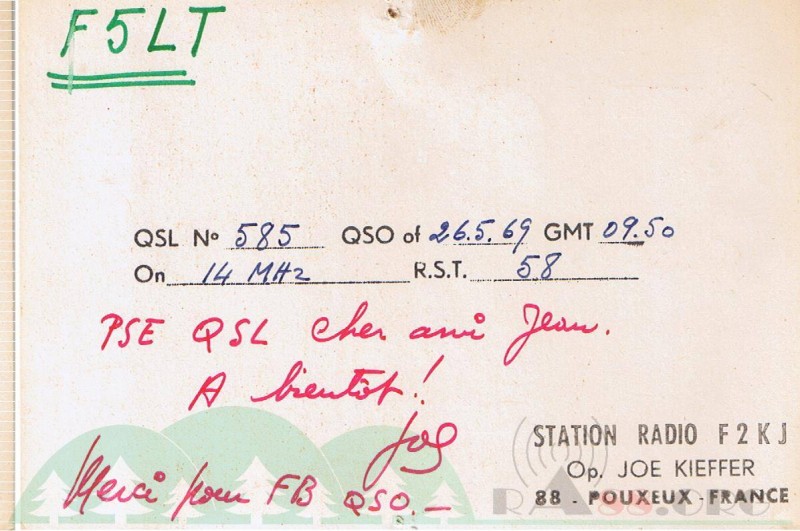 F5LT
QSL Nº 585 QSO of 26.5.69 GMT 09.50
On 14 MHz R.S.T. 58
PSE QSL Cher ami Jean.
A bientôt!
Joe
Merci pour FB QSO.—
STATION RADIO F2KJ
Op. JOE KIEFFER
88 - POUXEUX - FRANCE
RA88.ORG